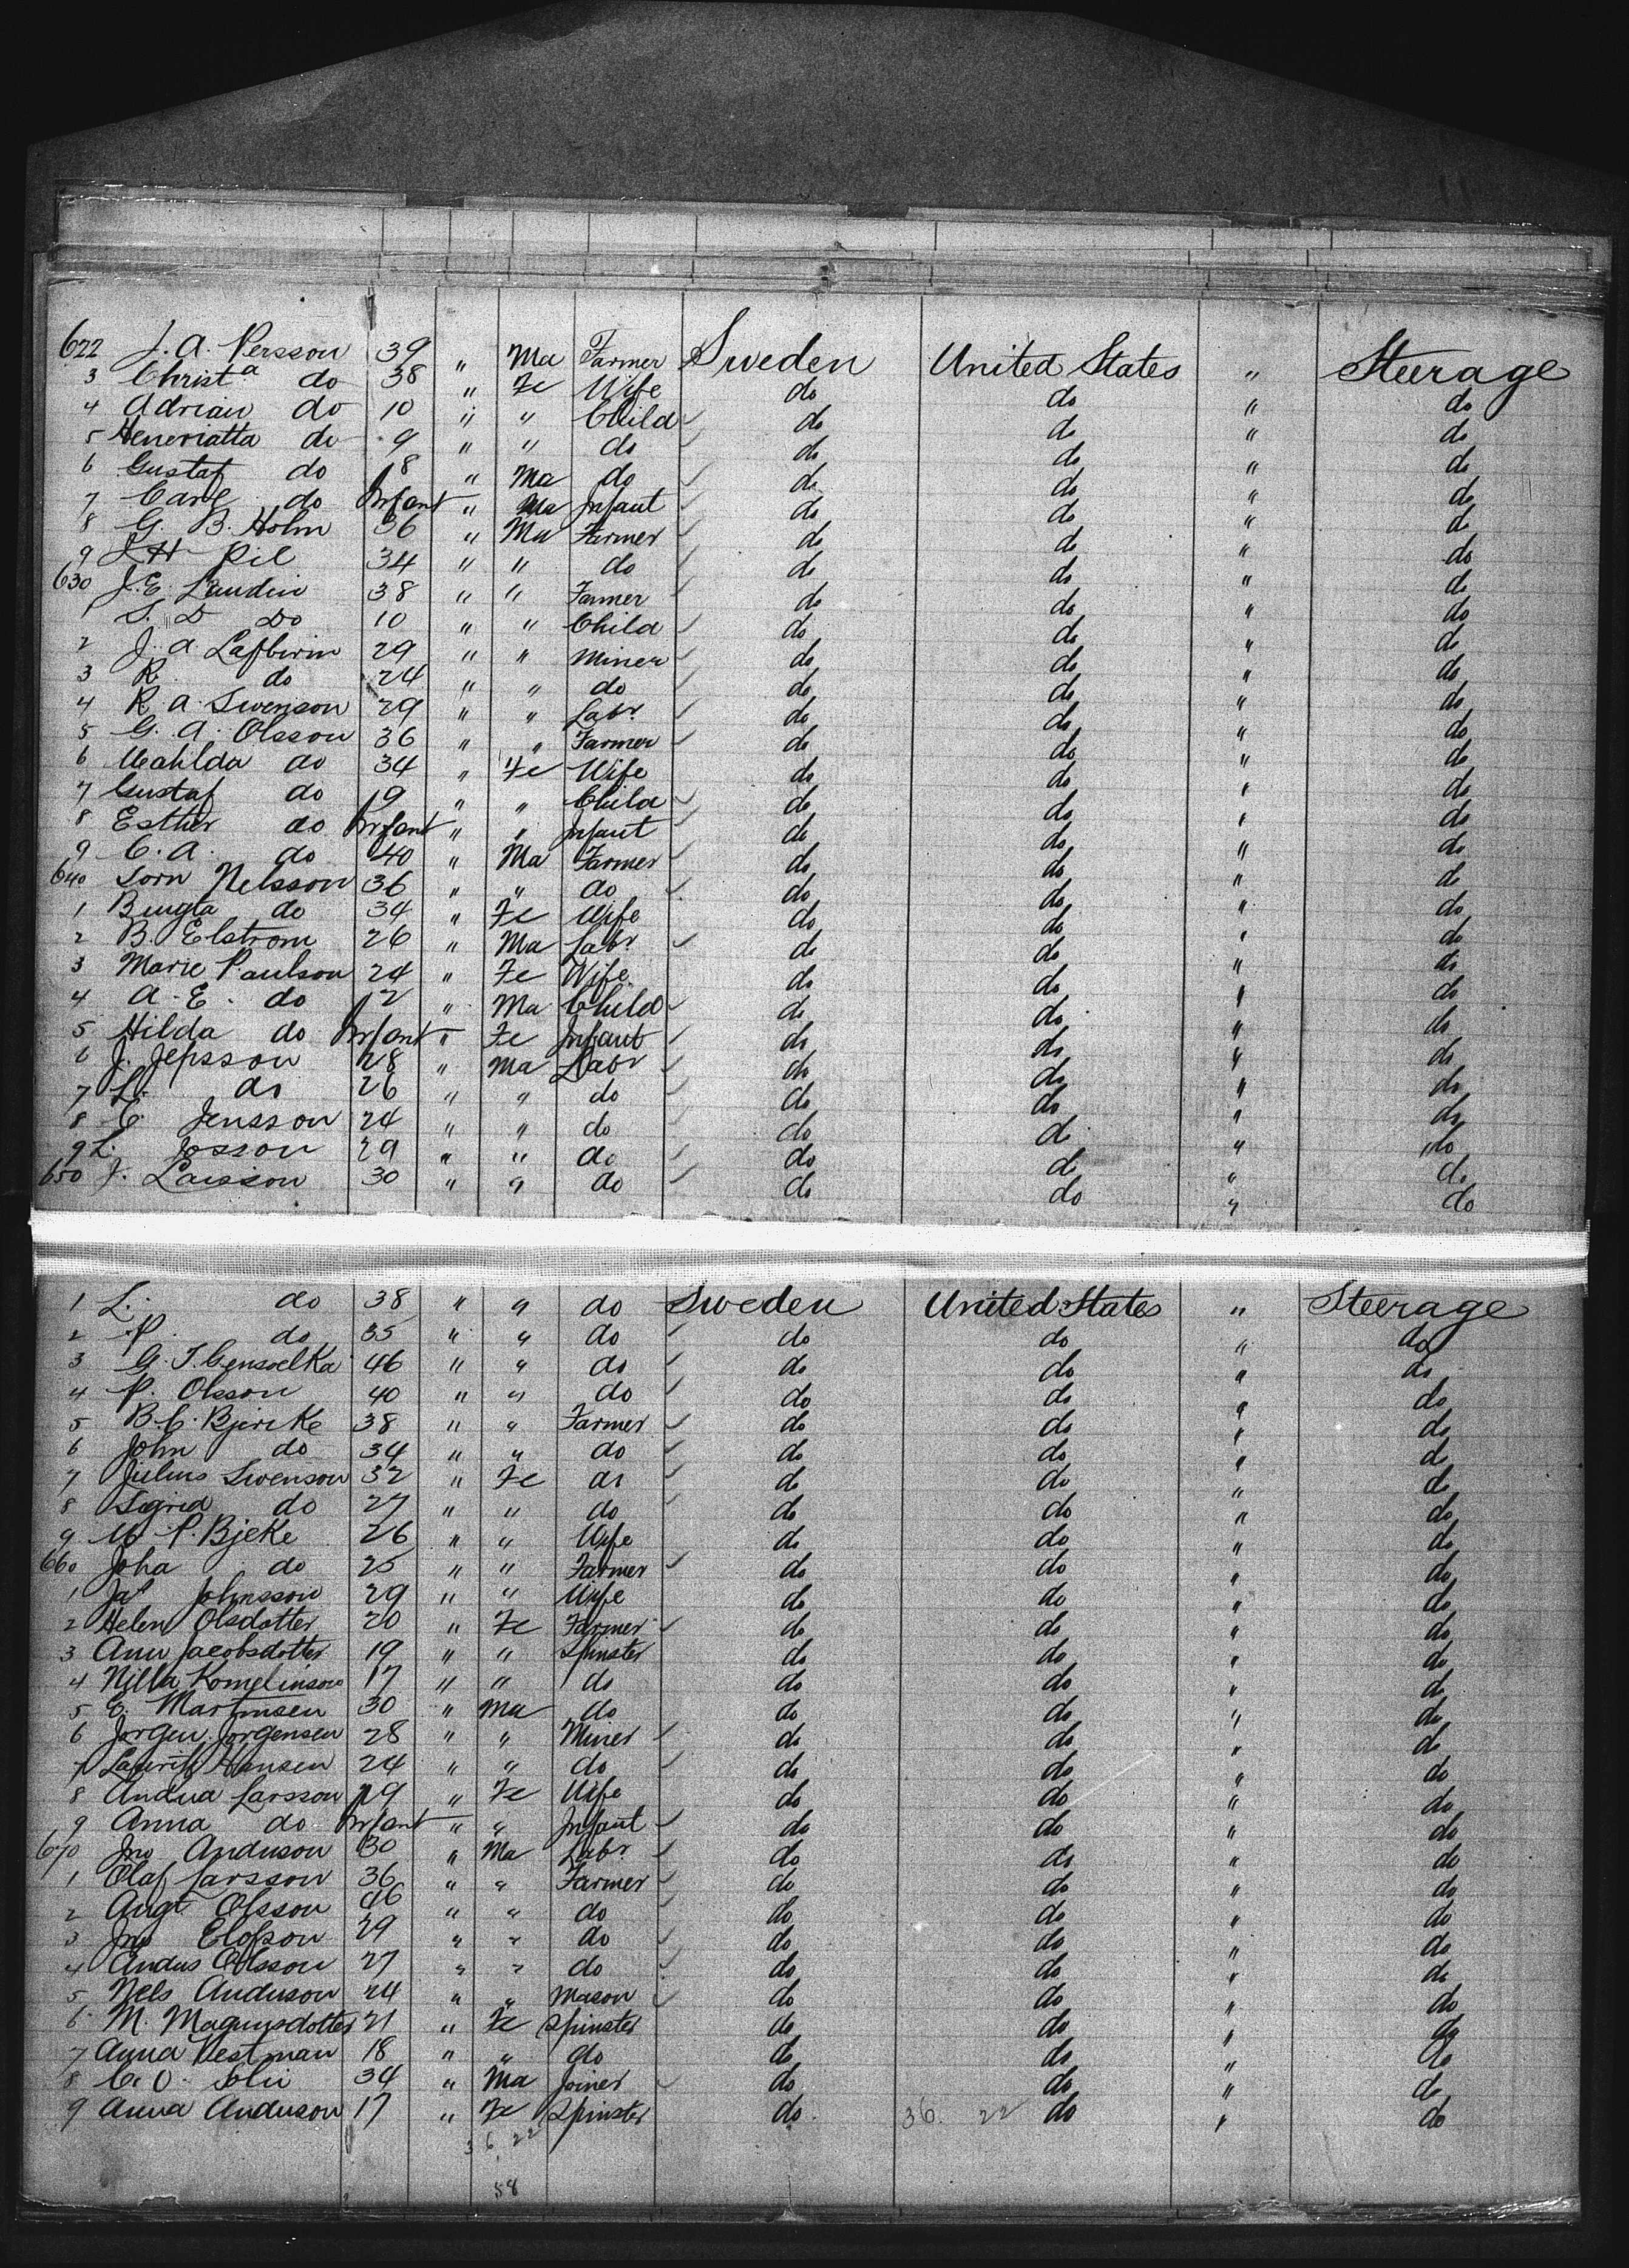 622 J. A. Persson 39 " Ma Farmer Sweden United States " Steerage
3 Christa do 38 " Fe Wife do do " do
4 Adrian do 10 " " Child do do " do
5 Heneriatta do 9 " " do do do " do
6 Gustaf do 8 " Ma do do do " do
7 Carl do Infant " Ma Infant do do " do
8 G. B. Holm 36 " Ma Farmer do do " do
9 J H Pil 34 " " do do do " do
630 J. E. Laudin 38 " " Farmer do do " do
1 S. D Do 10 " " Child do do " do
2 J. A 29 " " Miner do do " do
3 R. do 24 " " do do do " do
4 R. A. Swenson 29 " " Labr. do do " do
5 G. A. Olsson 36 " " Farmer do do " do
6 Mahilda do 34 " Fe Wife do do " do
7 Gustaf do 9 " " Child do do " do
8 Esther do Infant " " Infant do do " do
9 C. A. do 40 " Ma Farmer do do " do
640 Sorn Nelsson 36 " " do do do " do
1 Bengta do 34 " Fe Wife do do " do
2 B. Elstrom 26 " Ma Labr do do " do
3 Marie Paulson 24 " Fe Wife do do " do
4 A. E. do 2 " Ma Child do do " do
5 Hilda do Infant " Fe Infant do do " do
6 J. Jepsson 28 " Ma Labr do do " do
7 L. do 26 " " do do do " do
8 C. Jensson 24 " " do do do " do
9 L. Josson 29 " " do do do " do
650 J. Larsson 30 " " do do do " do
1 L. do 38 " " do Sweden United States " Steerage
2 P. do 35 " " do do do " do
3 G. J. 46 " " do do do " do
4 P. Olsson 40 " " do do do " do
5 B. C. Bjericke 38 " " Farmer do do " do
6 John do 34 " " do do do " do
7 Julius Swenson 32 " Fe do do do " do
8 Sigrid do 27 " " do do do " do
9 M. P. Bjeke 26 " " Wife do do " do
660 Joha do 25 " " Farmer do do " do
1 Jas Johnsson 29 " " Wife do do " do
2 Helen Olsdotter 20 " Fe Farmer do do " do
3 Ann Jacobsdotter 19 " " Spinster do do " do
4 Nilla 17 " " do do do " do
5 E. Martinsen 30 " Ma do do do " do
6 Jorgen Jorgensen 28 " " Miner do do " do
7 Hansen 24 " " do do do " do
8 Andua Larsson 29 " Fe Wife do do " do
9 Anna do Infant " " Infant do do " do
670 Jno Anduson 30 " Ma Labr do do " do
1 Olaf Larsson 36 " " Farmer do do " do
2 Augt. Olsson 46 " " do do do " do
3 Jno Elofson 29 " " do do do " do
4 Andus Olsson 27 " " do do do " do
5 Nels Anduson 24 " " Mason do do " do
6 M. Magnusdotter 21 " Fe Spinster do do " do
7 Anna Vestman 18 " " do do do " do
8 C. O. Solii 34 " Ma Joiner do do " do
9 Anna Anduson 17 " Fe Spinster do 36. 22 do " do
36 22
58